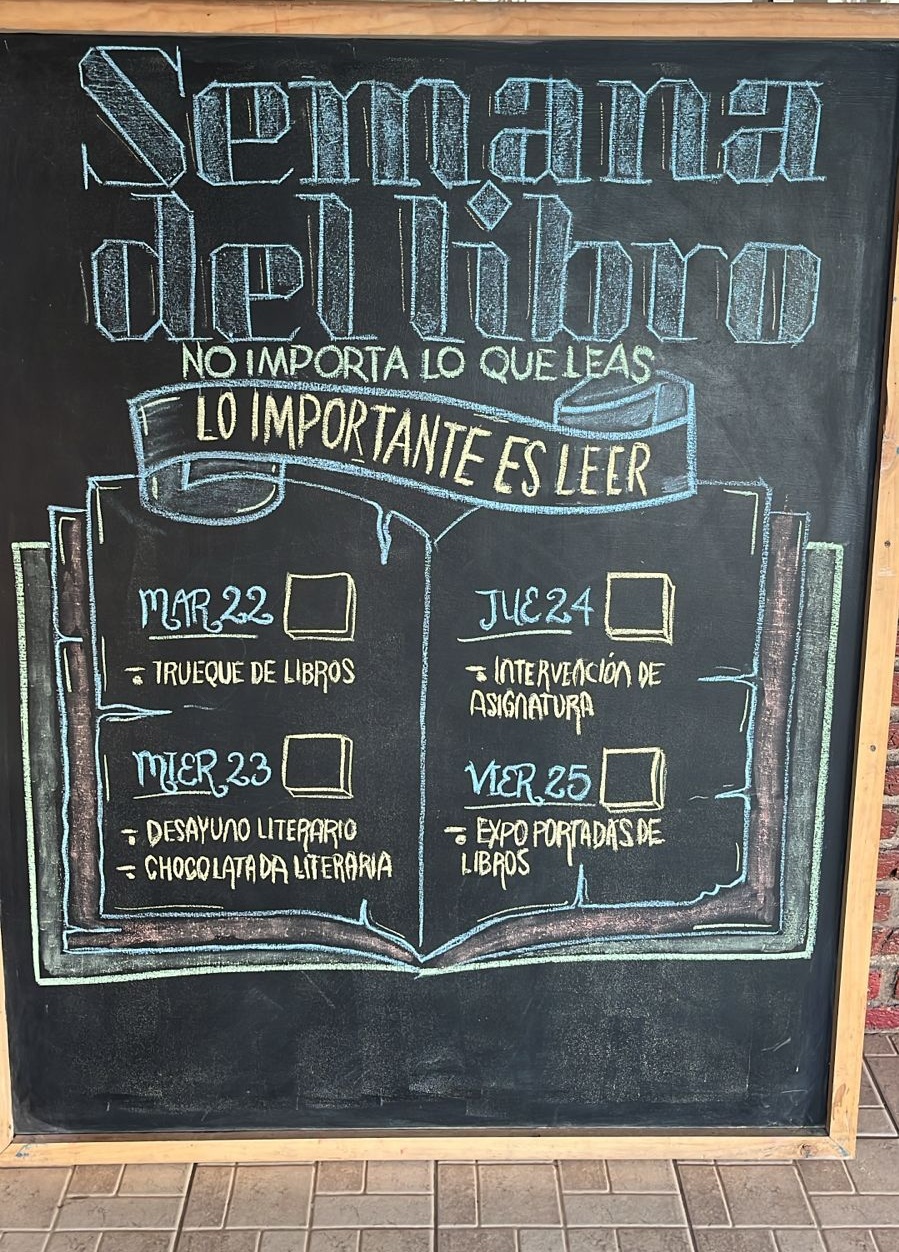 Semana
del libro
NO IMPORTA LO QUE LEAS
LO IMPORTANTE ES LEER
MAR 22
- TRUEQUE DE LIBROS
MIER 23
- DESAYUNO LITERARIO
- CHOCOLATADA LITERARIA
JUE 24
- INTERVENCIÓN DE
ASIGNATURA
VIER 25
- EXPO PORTADAS DE
LIBROS